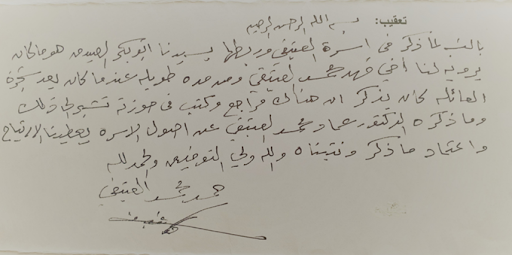 تعقيب: بسم الله الرحمن الرحيم
بالنسبة لما ذكر في اسرة العتيقي وربطها بسيدنا ابوبكر الصديق هو ما كان
يرويه لنا أخي فهد محمد العتيقي ومن مده طويله عندما كان يعد شجرة
العائله كان يذكر ان هناك مراجع وكتب في حوزته تشير الى ذلك
وما ذكره الدكتور عماد محمد العتيقي عن اصول الاسره يعطينا الارتياح
واعتماد ما ذكر ونتبناه والله ولي التوفيق والحمدلله
محمد العتيقي